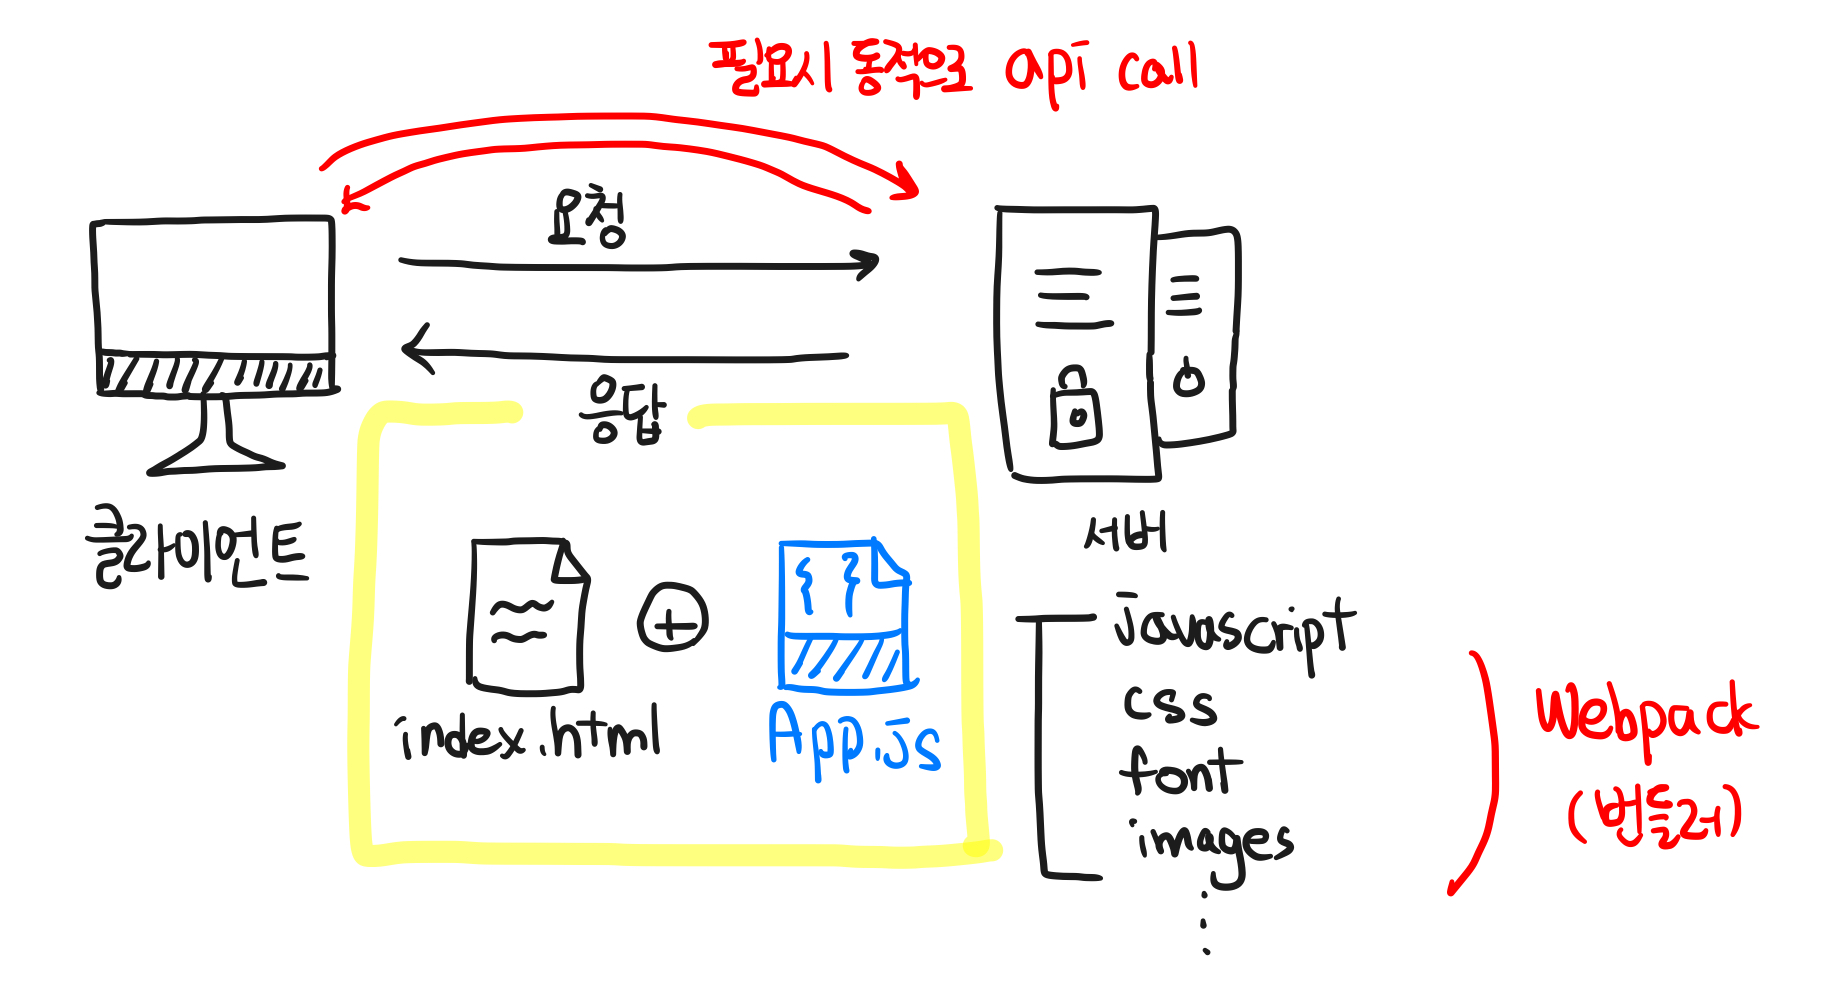 필요시 동적으로 api call
요청
응답
클라이언트
서버
index.html
App.js
javascript
css
font
images
Webpack
(번들러)